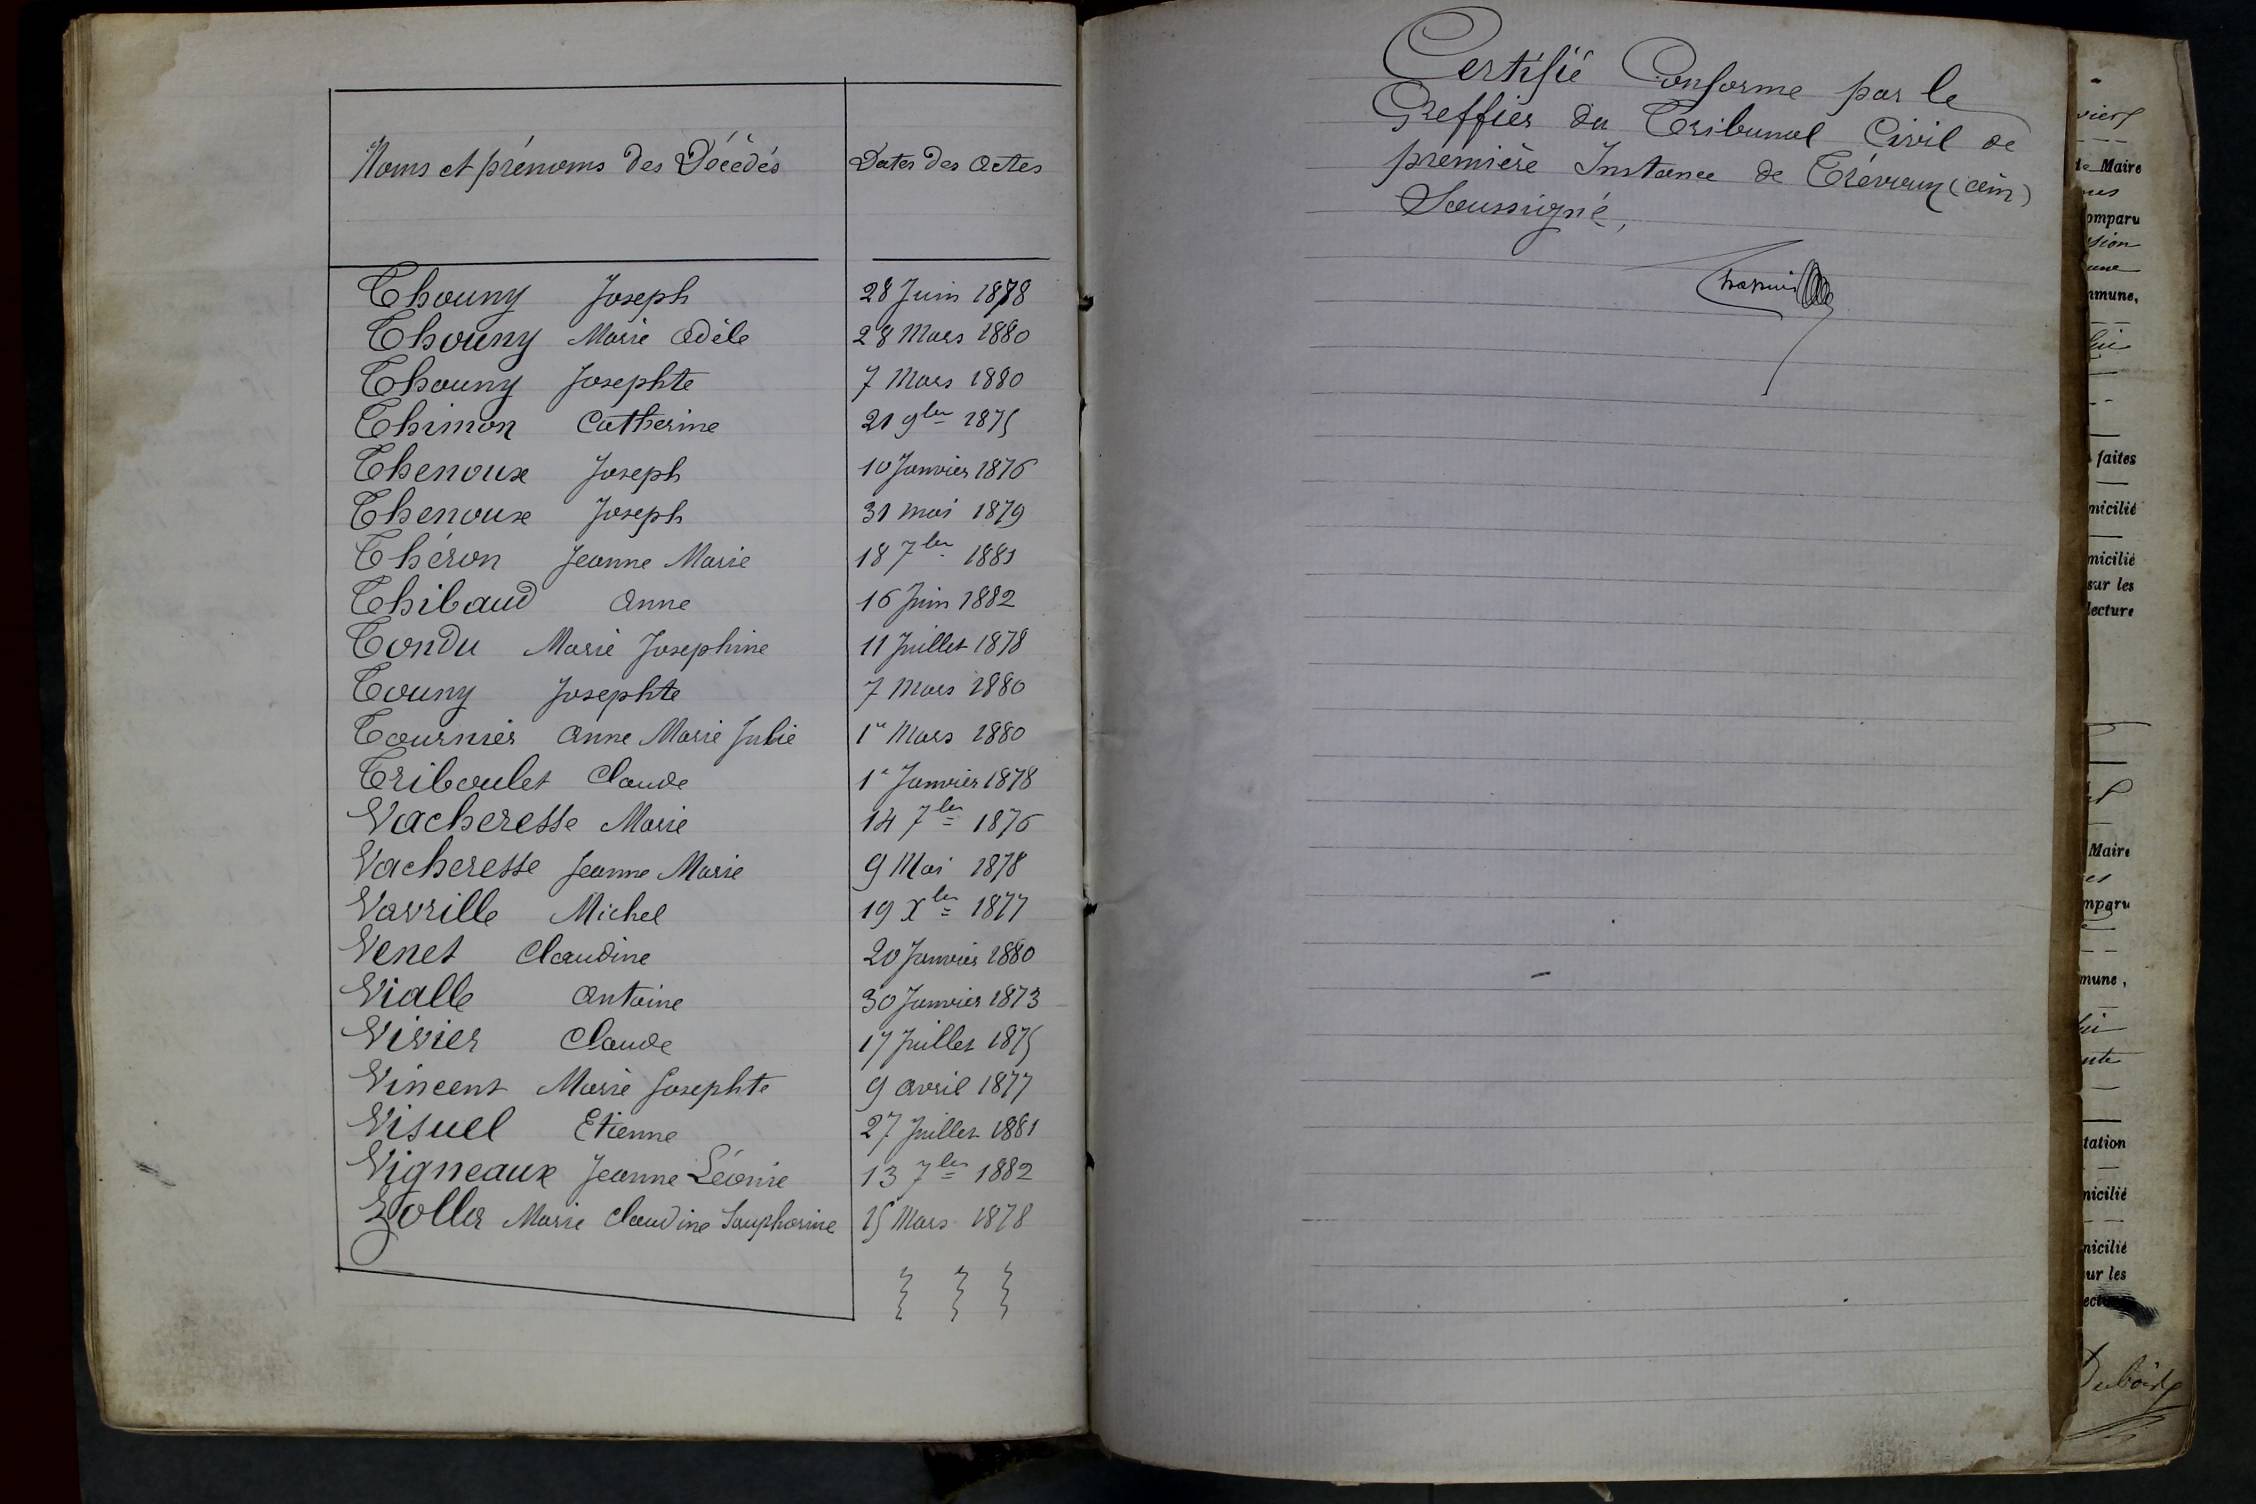 Noms et prénoms des Décédés Dates des actes
Thouny Joseph 28 Juin 1878
Thouny Marie Adèle 28 Mars 1880
Thouny Josephte 7 Mars 1880
Thimon Catherine 21 9bre 1875
Thenoux Joseph 10 Janvier 1876
Thenoux Joseph 31 mai 1879
Théron Jeanne Marie 18 7bre 1881
Thibaud Anne 16 Juin 1882
Tondu Marie Josephine 11 Juillet 1878
Touny Josephte 7 Mars 1880
Tournier Anne Marie Julie 1er Mars 1880
Triboulet Claude 1er Janvier 1878
Vacheresse Marie 14 7bre 1876
Vacheresse Jeanne Marie 9 Mai 1878
Vavrille Michel 19 Xbre 1877
Venet Claudine 20 Janvier 1880
Vialle Antoine 30 Janvier 1873
Vivier Claude 17 Juillet 1875
Vincent Marie Josephte 9 avril 1877
Visuel Etienne 27 Juillet 1881
Vigneaux Jeanne Léonie 13 7bre 1882
Zolla Marie Claudine 15 Mars 1878
Certifié Conforme par le
Greffier du Tribunal Civil de
première Instance de Trévoux (ain)
Soussigné,
de Maire
omparu
mmune,
faites
micilié
micilié
sur les
lecture
Maire
mparu
mune,
tation
micilié
micilié
ur les